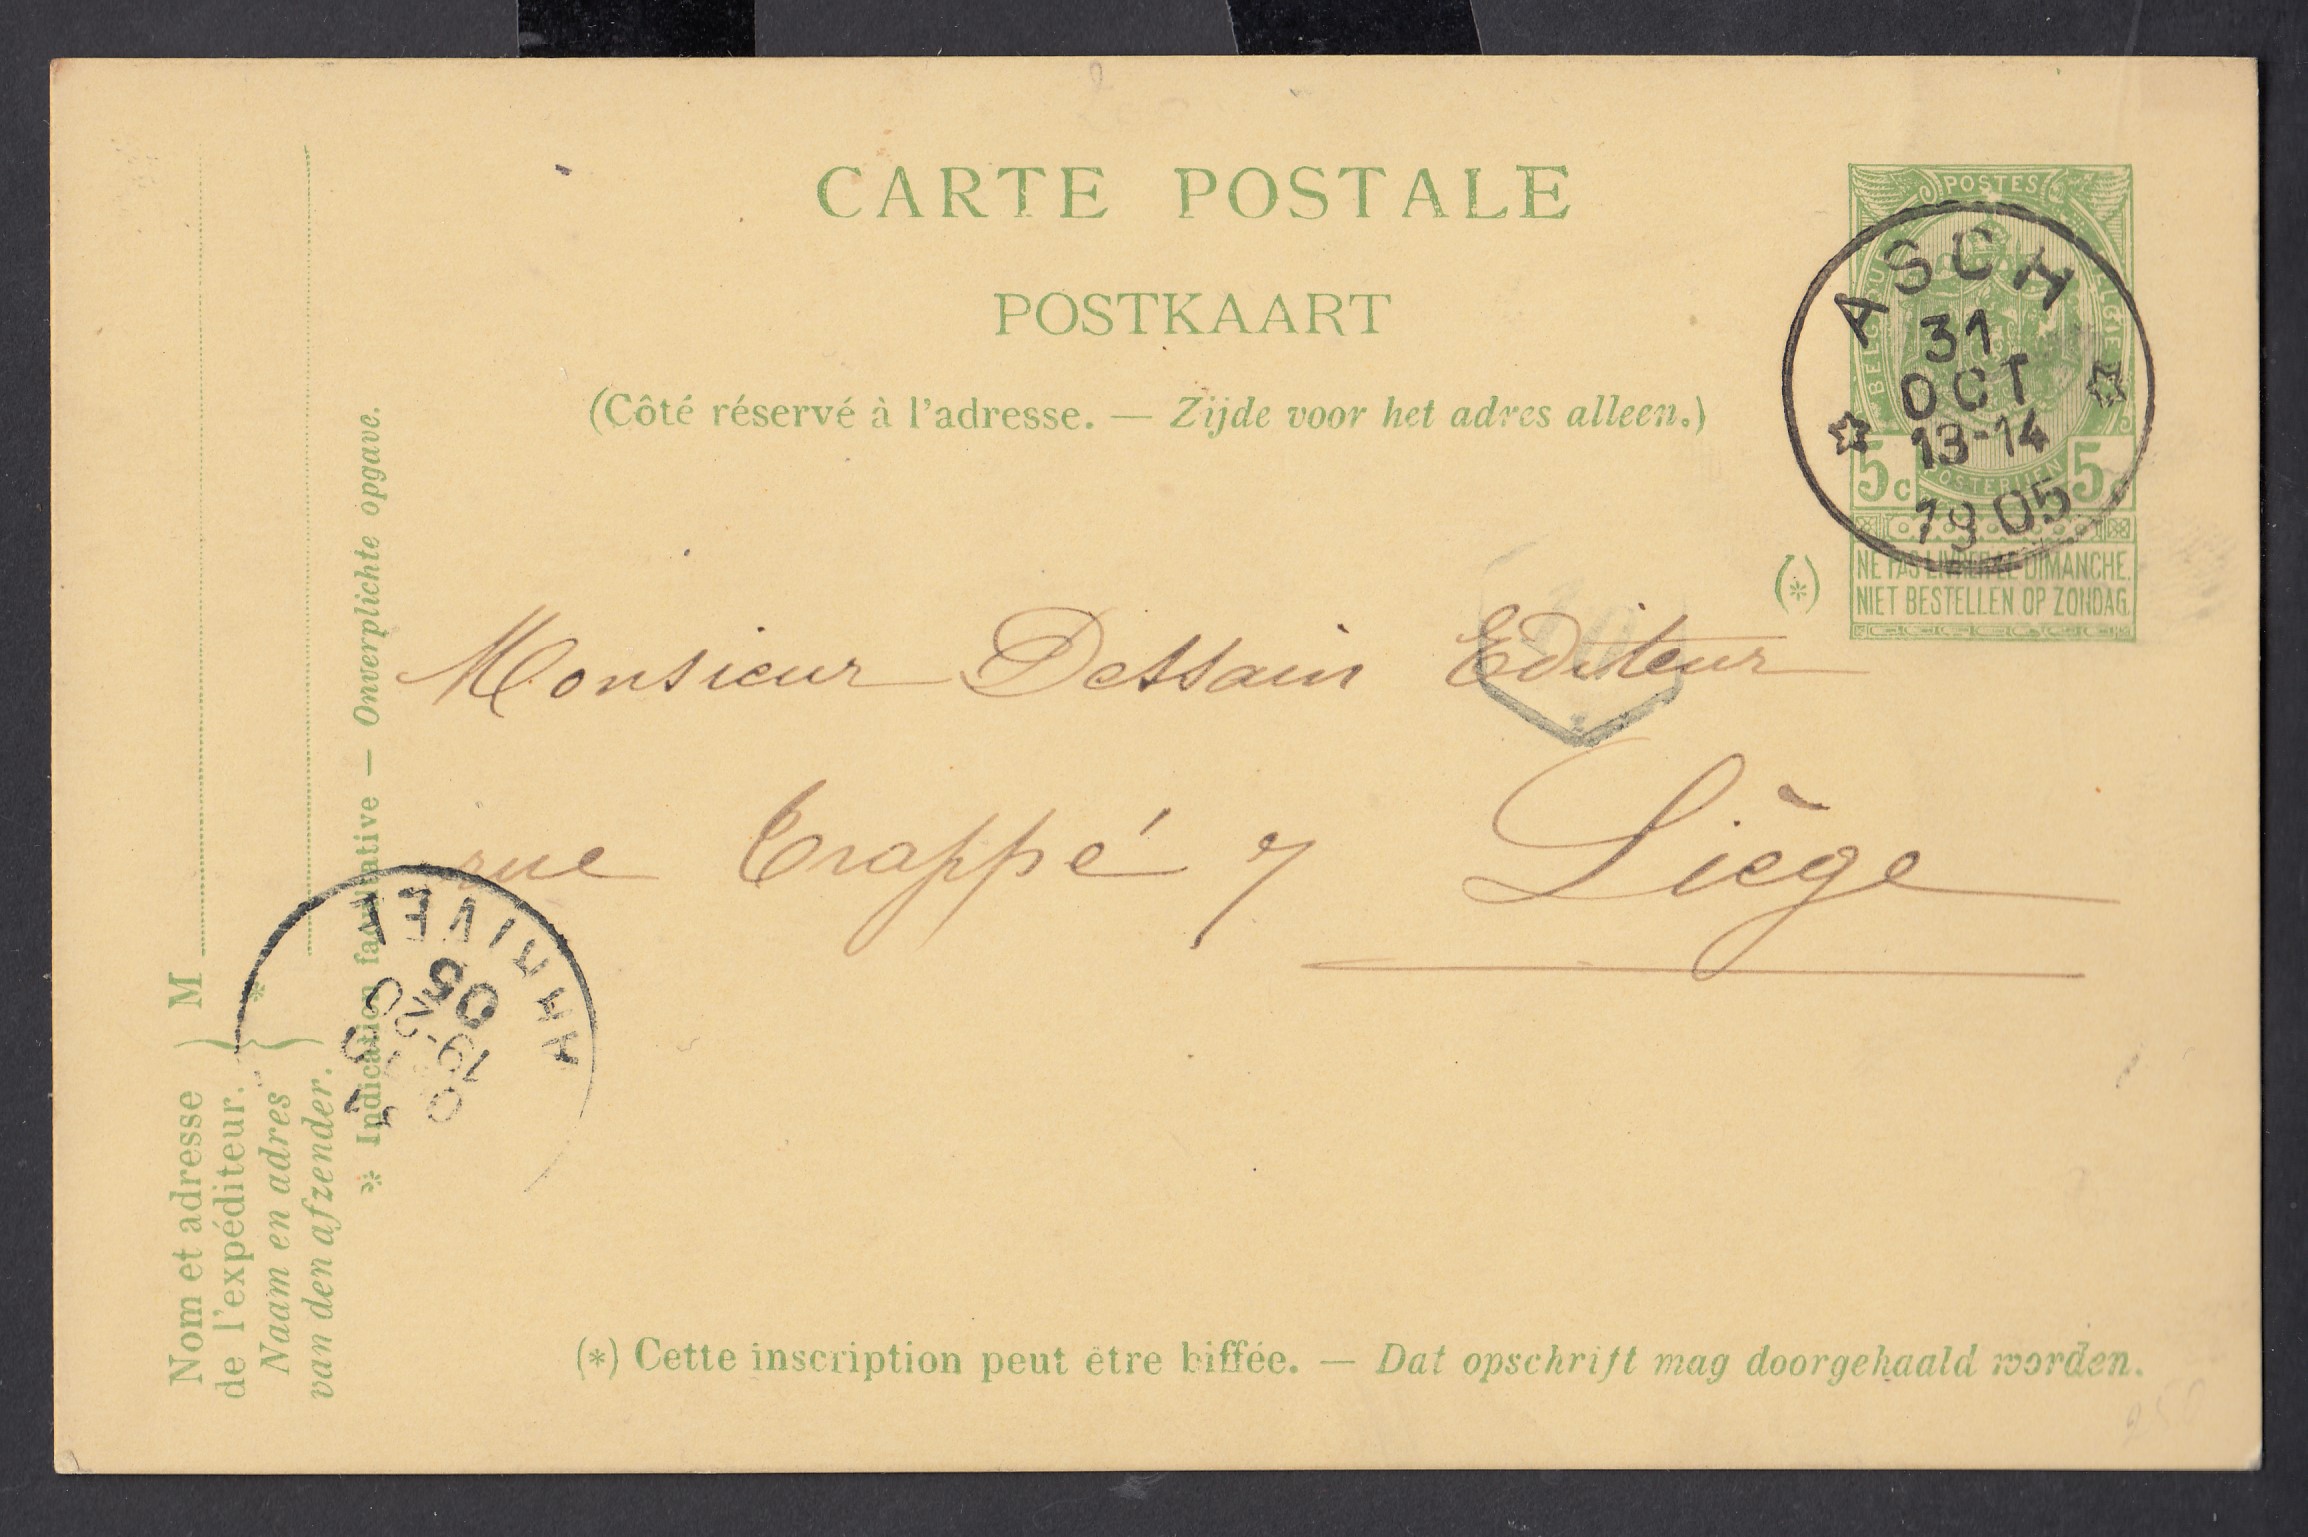 CARTE POSTALE
POSTKAART
(Côté réservé à l'adresse. — Zijde voor het adres alleen.)
POSTES
BELGIQUE
BELGIE
5c 5c
POSTERIJEN
NE PAS LIVRER LE DIMANCHE.
NIET BESTELLEN OP ZONDAG.
(*)
ASCH
31
OCT
13-14
1905
Monsieur Dessain Editeur
rue Trappé 7 Liège
ARRIVÉE
05
19-20
(*) Cette inscription peut être biffée. — Dat opschrift mag doorgehaald worden.
Nom et adresse
de l'expéditeur.
Naam en adres
van den afzender.
* M
* Indication facultative — Onverplichte opgave.